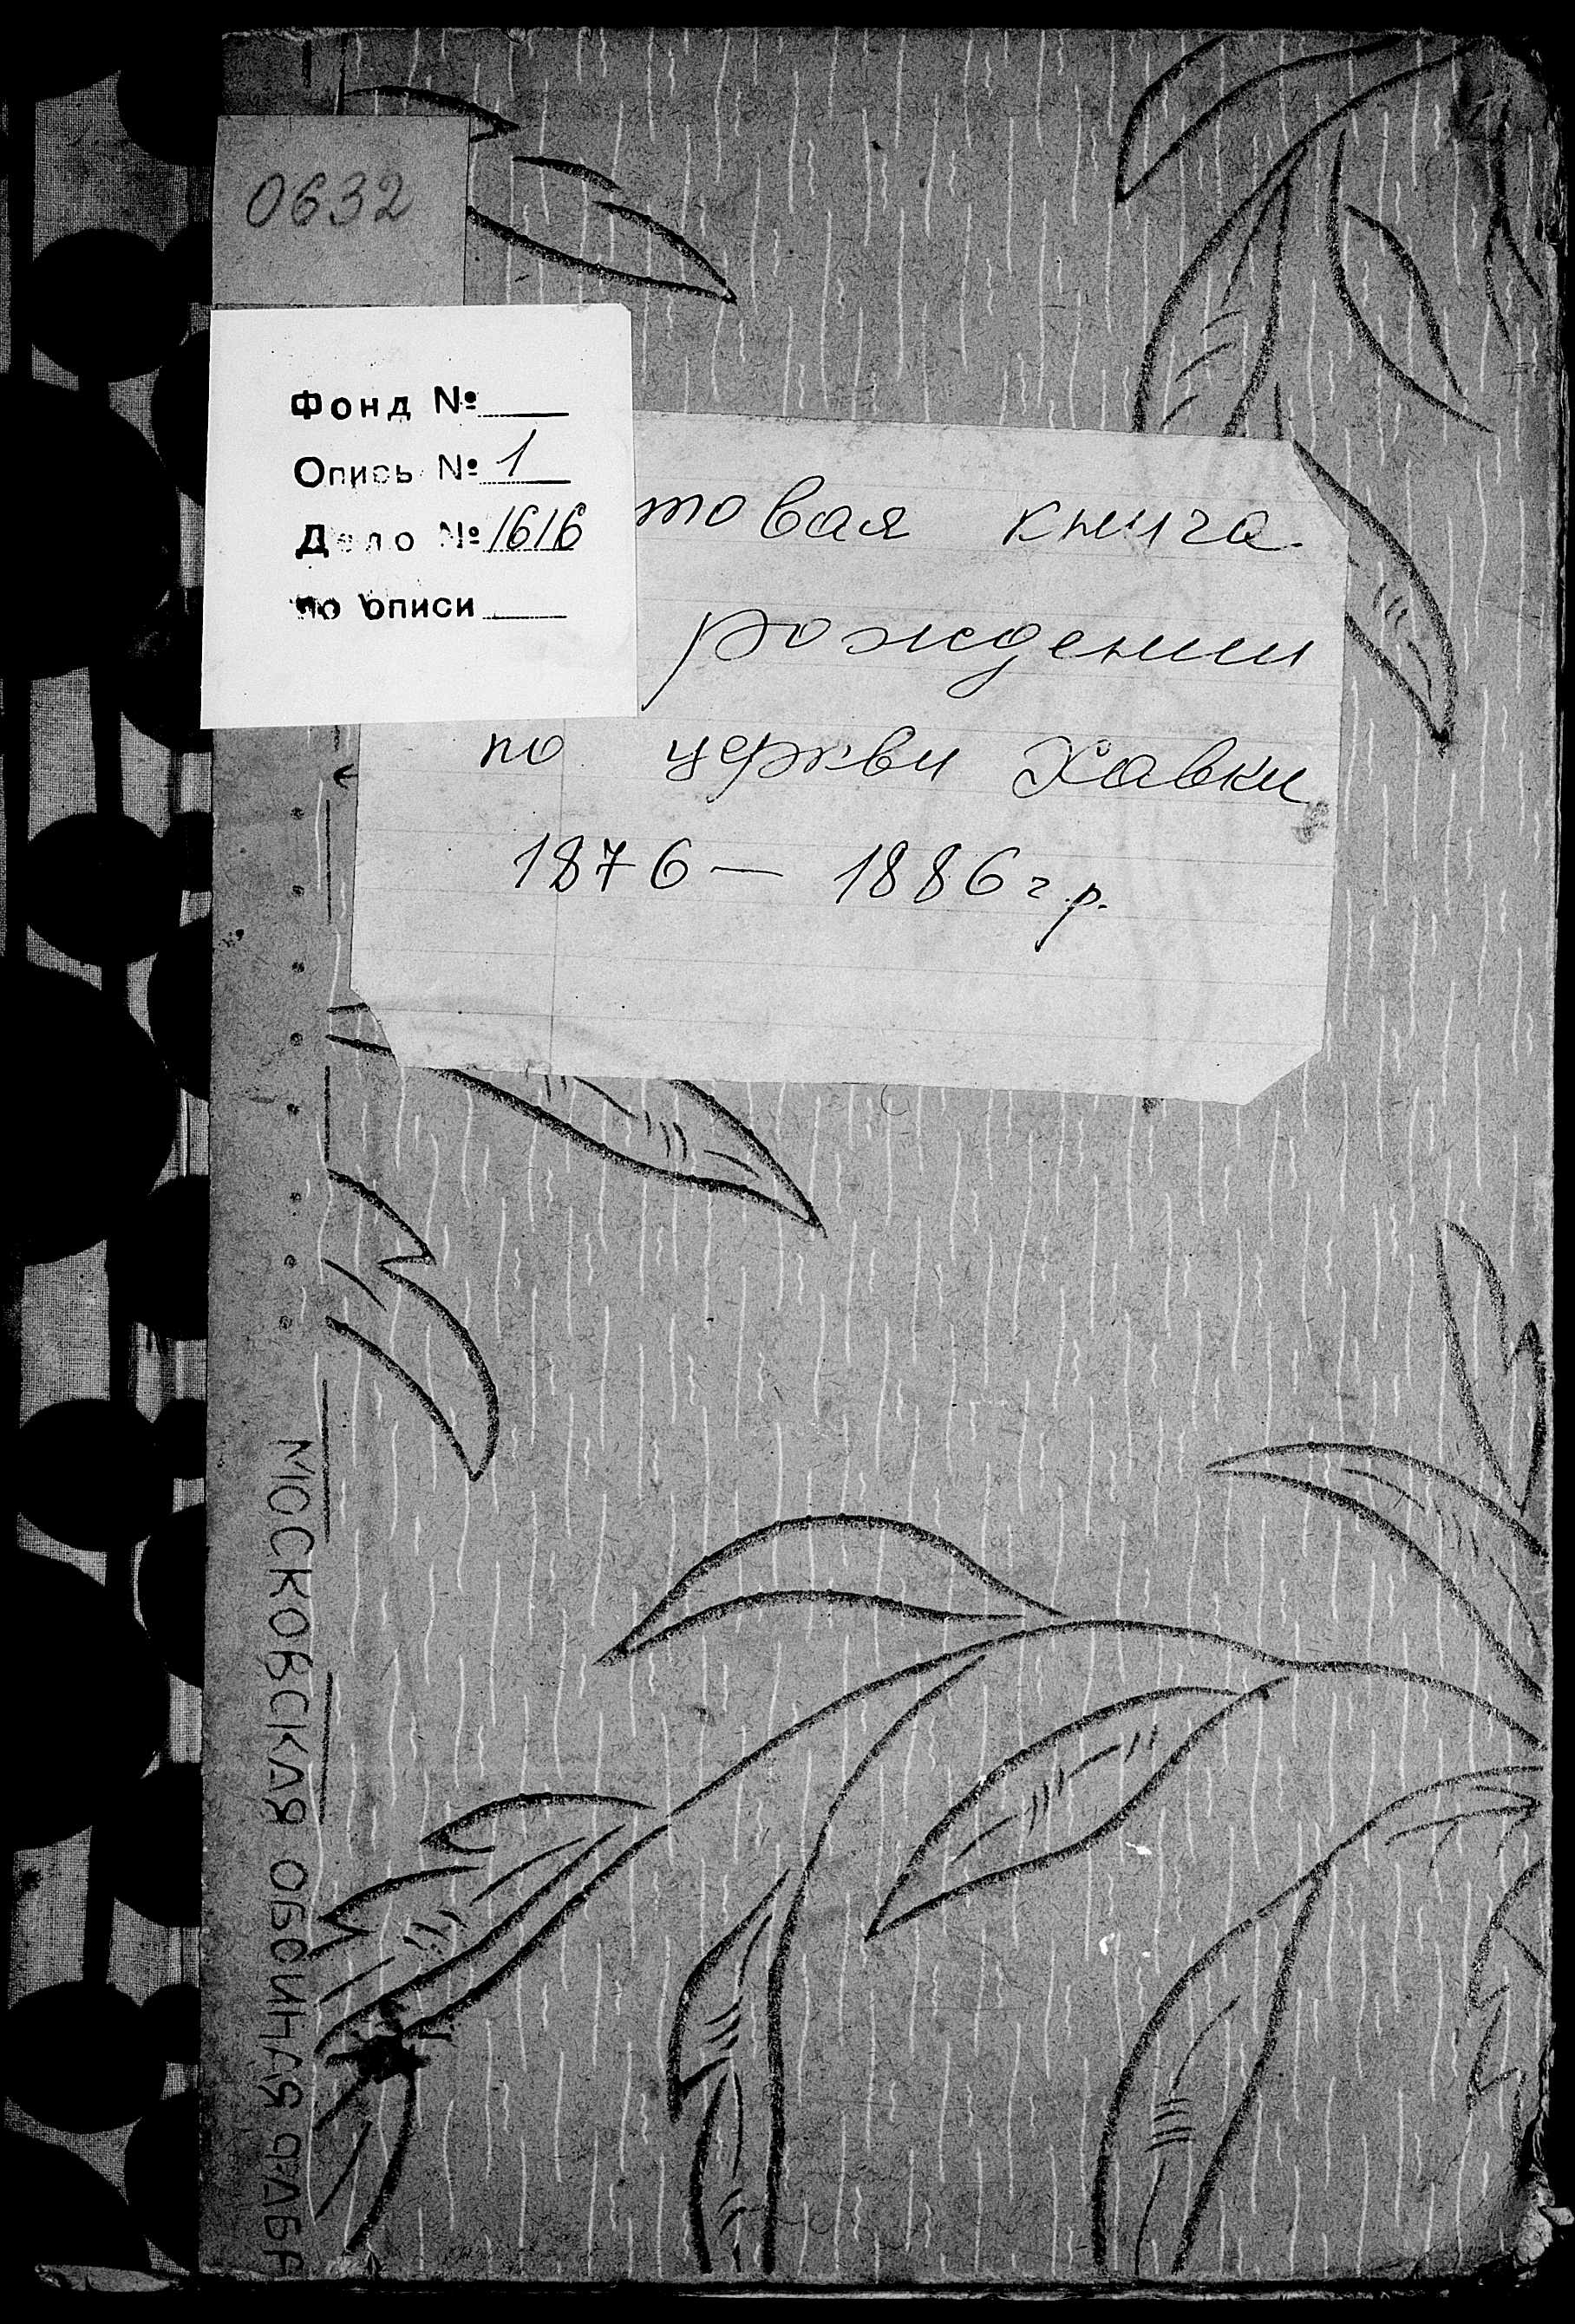 0632
Фонд №
Опись № 1
Дело № 1616
по описи
товая книга
рождении
по церкви Хавки
1876 — 1886 г.р.
МОСКОВСКАЯ ОБОЙНАЯ ФАБР